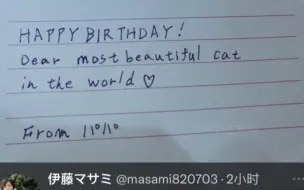 HAPPY BIRTHDAY!
Dear most beautiful cat
in the world ♡
From
伊藤マサミ @masami820703 · 2小时